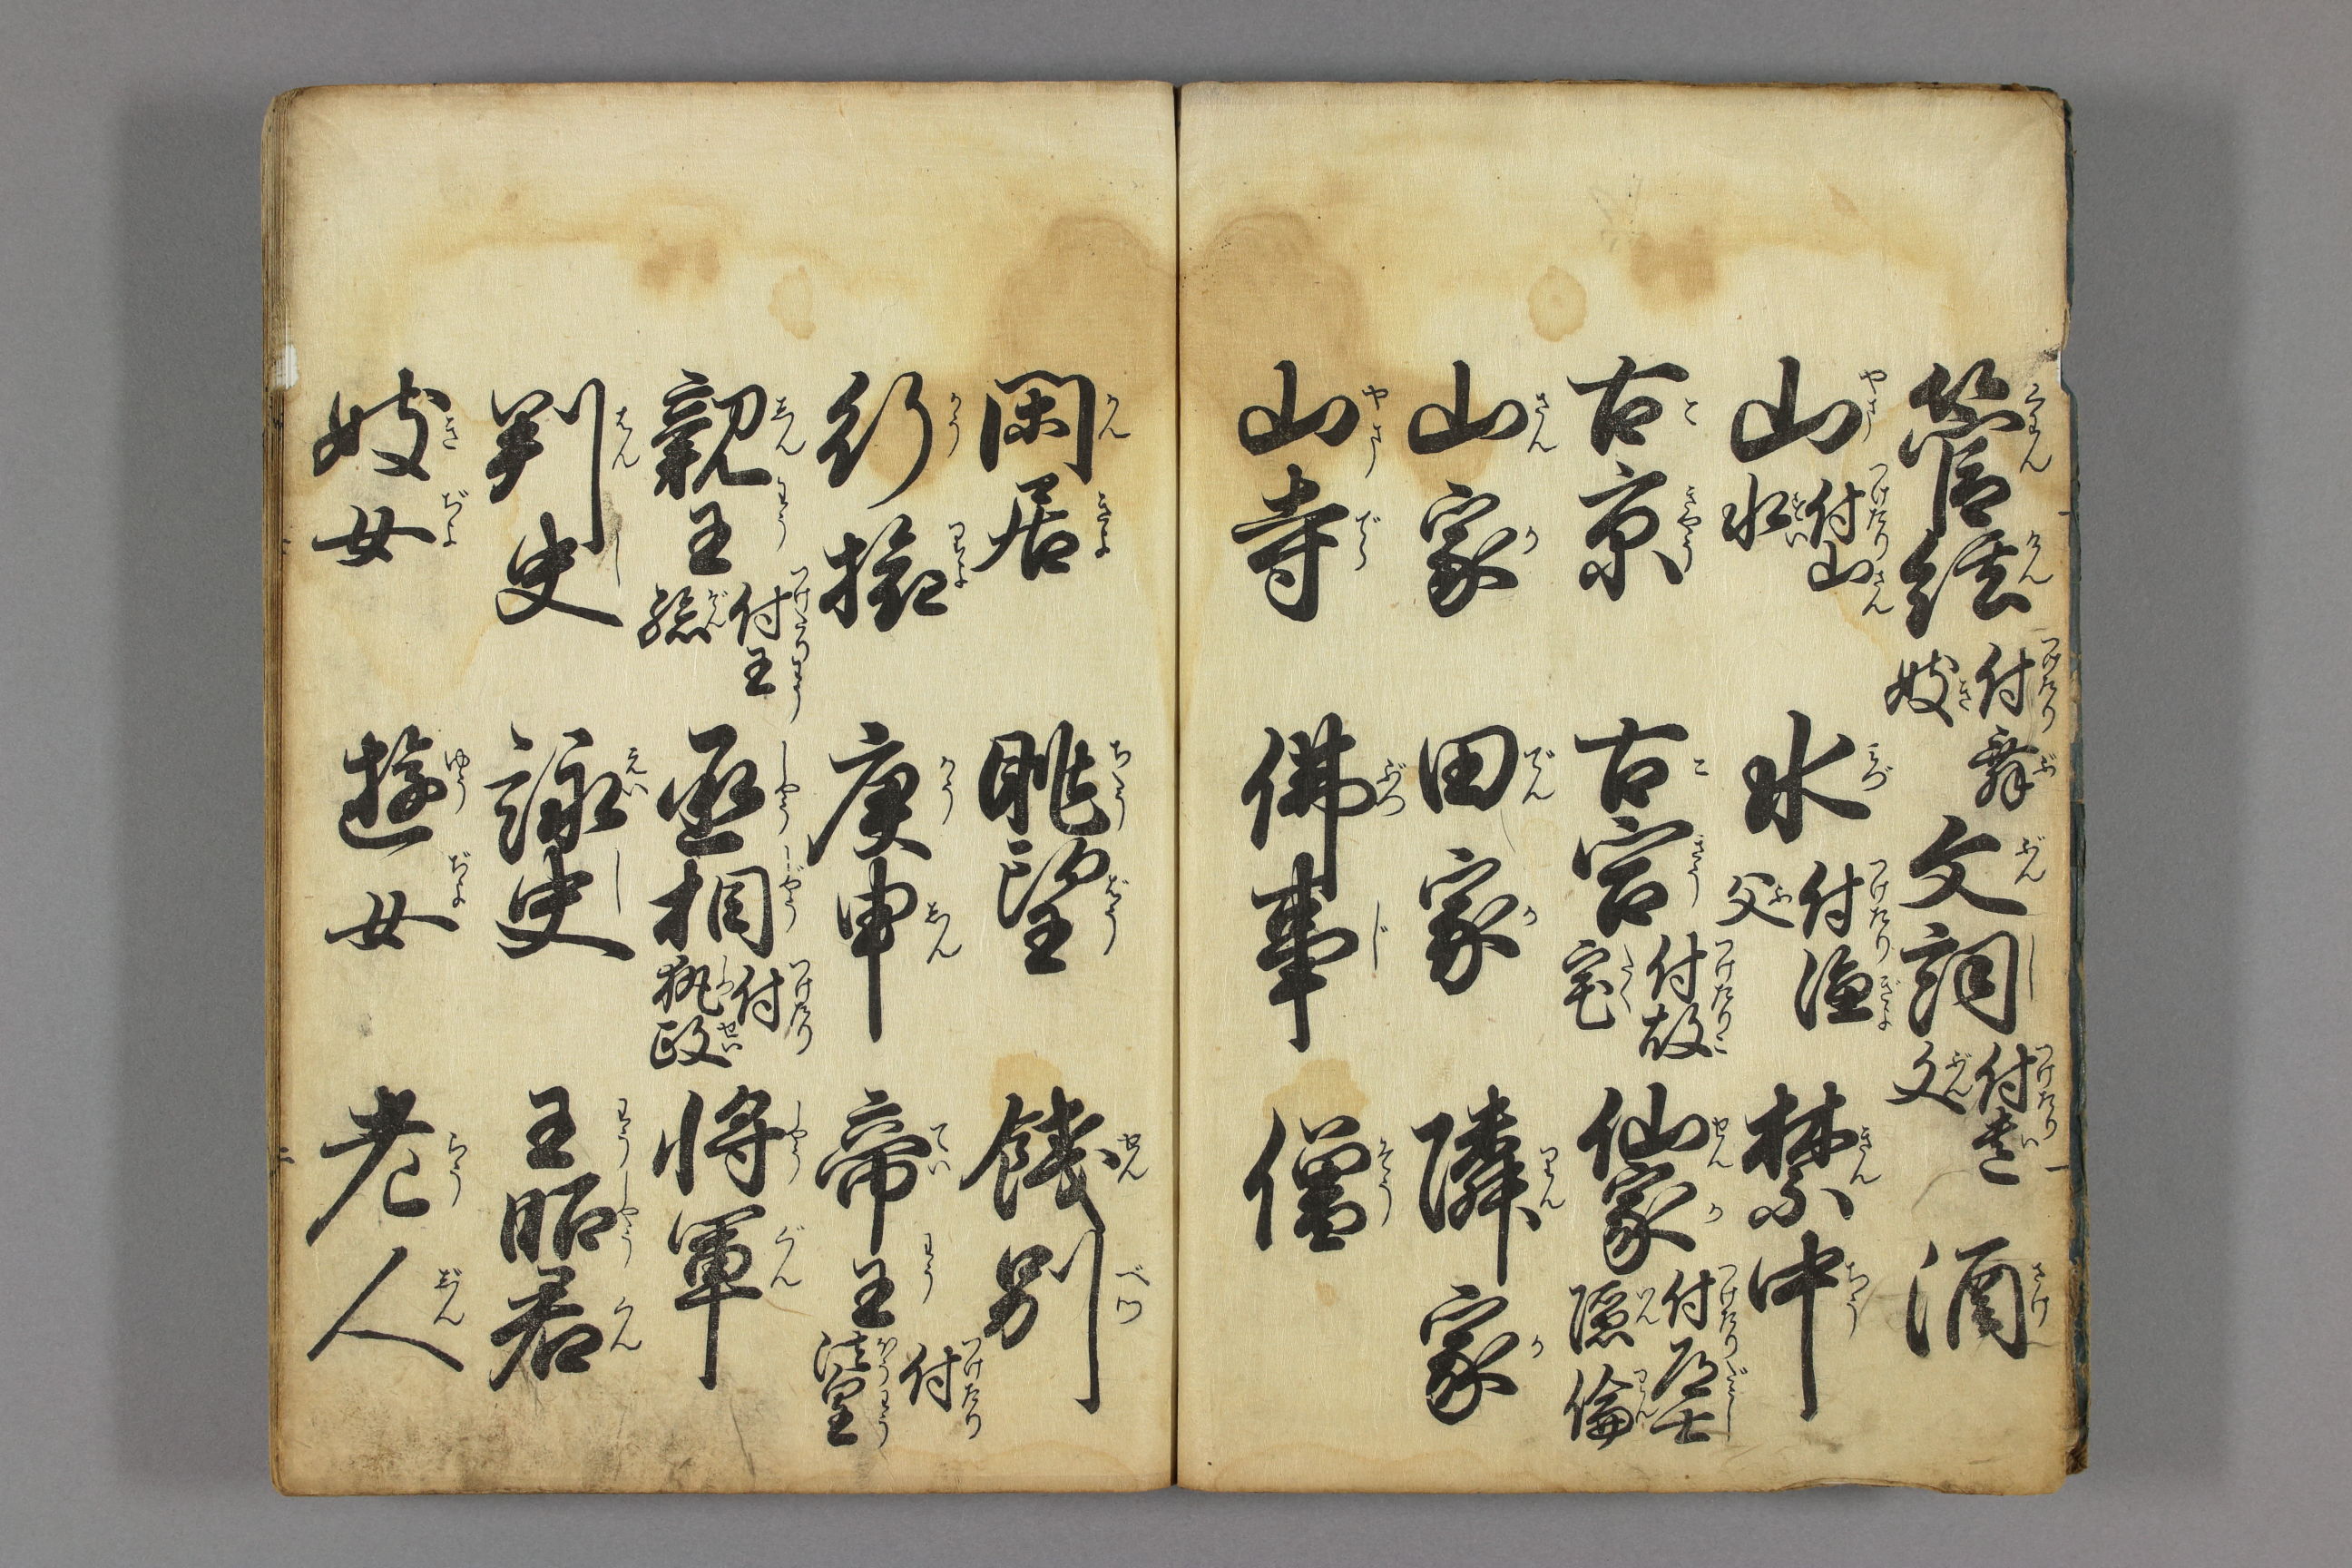 管絃 付舞妓 文詞 付遺文 酒
山 付山水 水 付漁父 禁中
古京 古宮 付故宅 仙家 付道士隠倫
山家 田家 隣家
山寺 佛事 僧
閑居 眺望 餞別
行旅 庚申 帝王 付法皇
親王 付王孫 丞相 付執政 将軍
判史 詠史 王昭君
妓女 遊女 老人